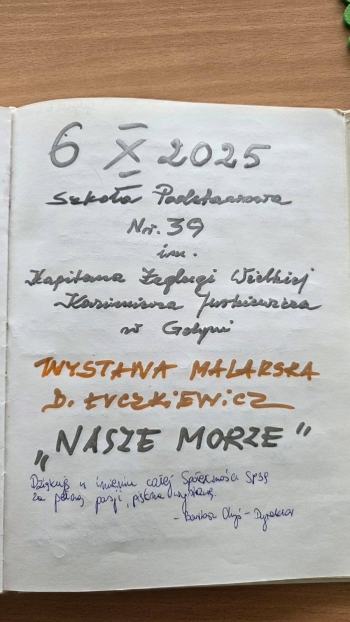 6 X 2025
Szkoła Podstawowa
Nr. 39
im.
Kapitana Żeglugi Wielkiej
Kazimierza Jurkiewicza
w Gdyni
WYSTAWA MALARSKA
D. ŁYCZKIEWiCZ
„NASZE MORZE"
Dziękuję w imieniu całej Społeczności SP39
za pełną pasji, piękną wystawę.
- Bartosz - Dyrektor